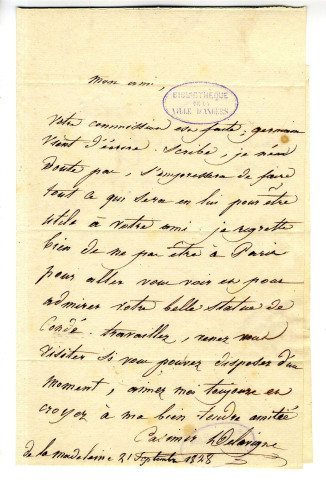 mon ami,
BIBLIOTHEQUE
DE LA
VILLE D'ANGERS
votre commission est faite; germain
vient d'écrire. Scribe, je n'en
doute pas, s'empressera de faire
tout ce qui sera en lui pour être
utile à votre ami. je regrette
bien de ne pas être à Paris
pour aller vous voir et pour
admirer votre belle statue de
Condé. travaillez, venez nous
visiter si vous pouvez disposer d'un
moment; aimez moi toujours et
croyez à ma bien tendre amitié
Casimir Delavigne
de la madelaine 21 Septembre 1828